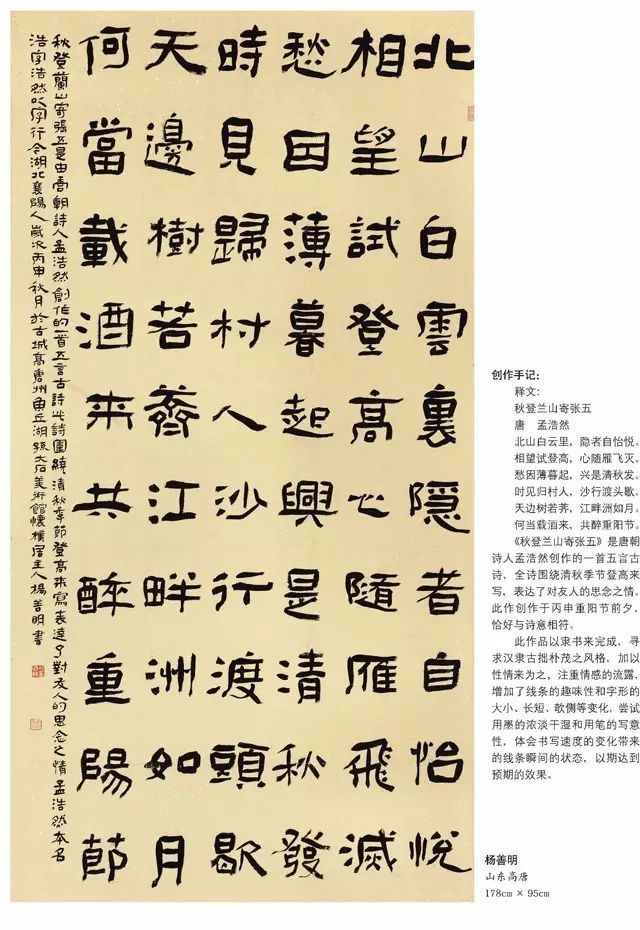 北山白雲裏隱者自怡悅
相望試登高心隨雁飛滅
愁因薄暮起興是清秋發
時見歸村人沙行渡頭歇
天邊樹若薺江畔洲如月
何當載酒來共醉重陽節
秋登蘭山寄張五是由唐朝詩人孟浩然創作的一首五言古詩此詩圍繞清秋季節登高來寫表達了對友人的思念之情孟浩然本名
浩字浩然以字行今湖北襄陽人歲次丙申秋月於古城高唐州魚丘湖孫大石美術館懷橫居主人楊善明書
创作手记：
释文：
秋登兰山寄张五
唐 孟浩然
北山白云里，隐者自怡悦。
相望试登高，心随雁飞灭。
愁因薄暮起，兴是清秋发。
时见归村人，沙行渡头歇。
天边树若荠，江畔洲如月。
何当载酒来，共醉重阳节。
《秋登兰山寄张五》是唐朝
诗人孟浩然创作的一首五言古
诗，全诗围绕清秋季节登高来
写，表达了对友人的思念之情。
此作创作于丙申重阳节前夕，
恰好与诗意相符。
此作品以隶书来完成，寻
求汉隶古拙朴茂之风格，加以
性情来为之，注重情感的流露，
增加了线条的趣味性和字形的
大小、长短、欹侧等变化，尝试
用墨的浓淡干湿和用笔的写意
性，体会书写速度的变化带来
的线条瞬间的状态，以期达到
预期的效果。
杨善明
山东高唐
178cm × 95cm